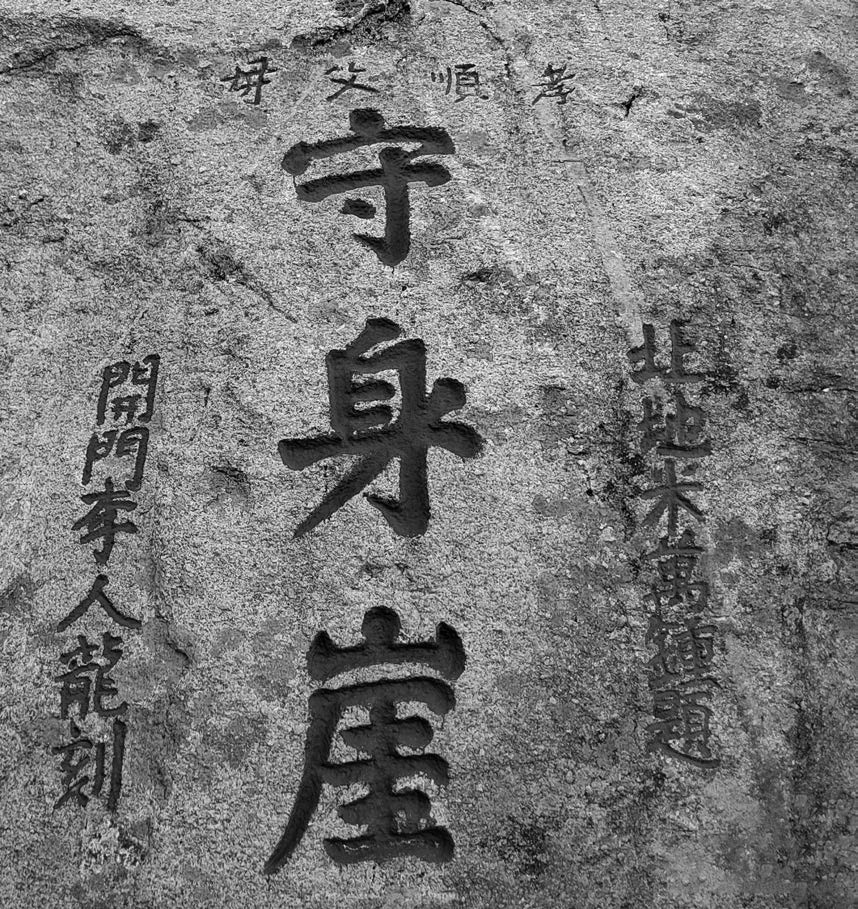 孝順父母
北地米萬鍾題
守身崖
開門李人龍刻